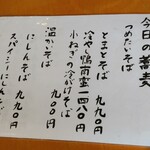 今日の蕎麦
つめたいそば
とまとそば
冷やし鴨南蛮一四八〇円
小ねぎの冷かけそば
九〇〇円
温かいそば
にしんそば 九九〇円
スパイシーにしんそば
九九〇円